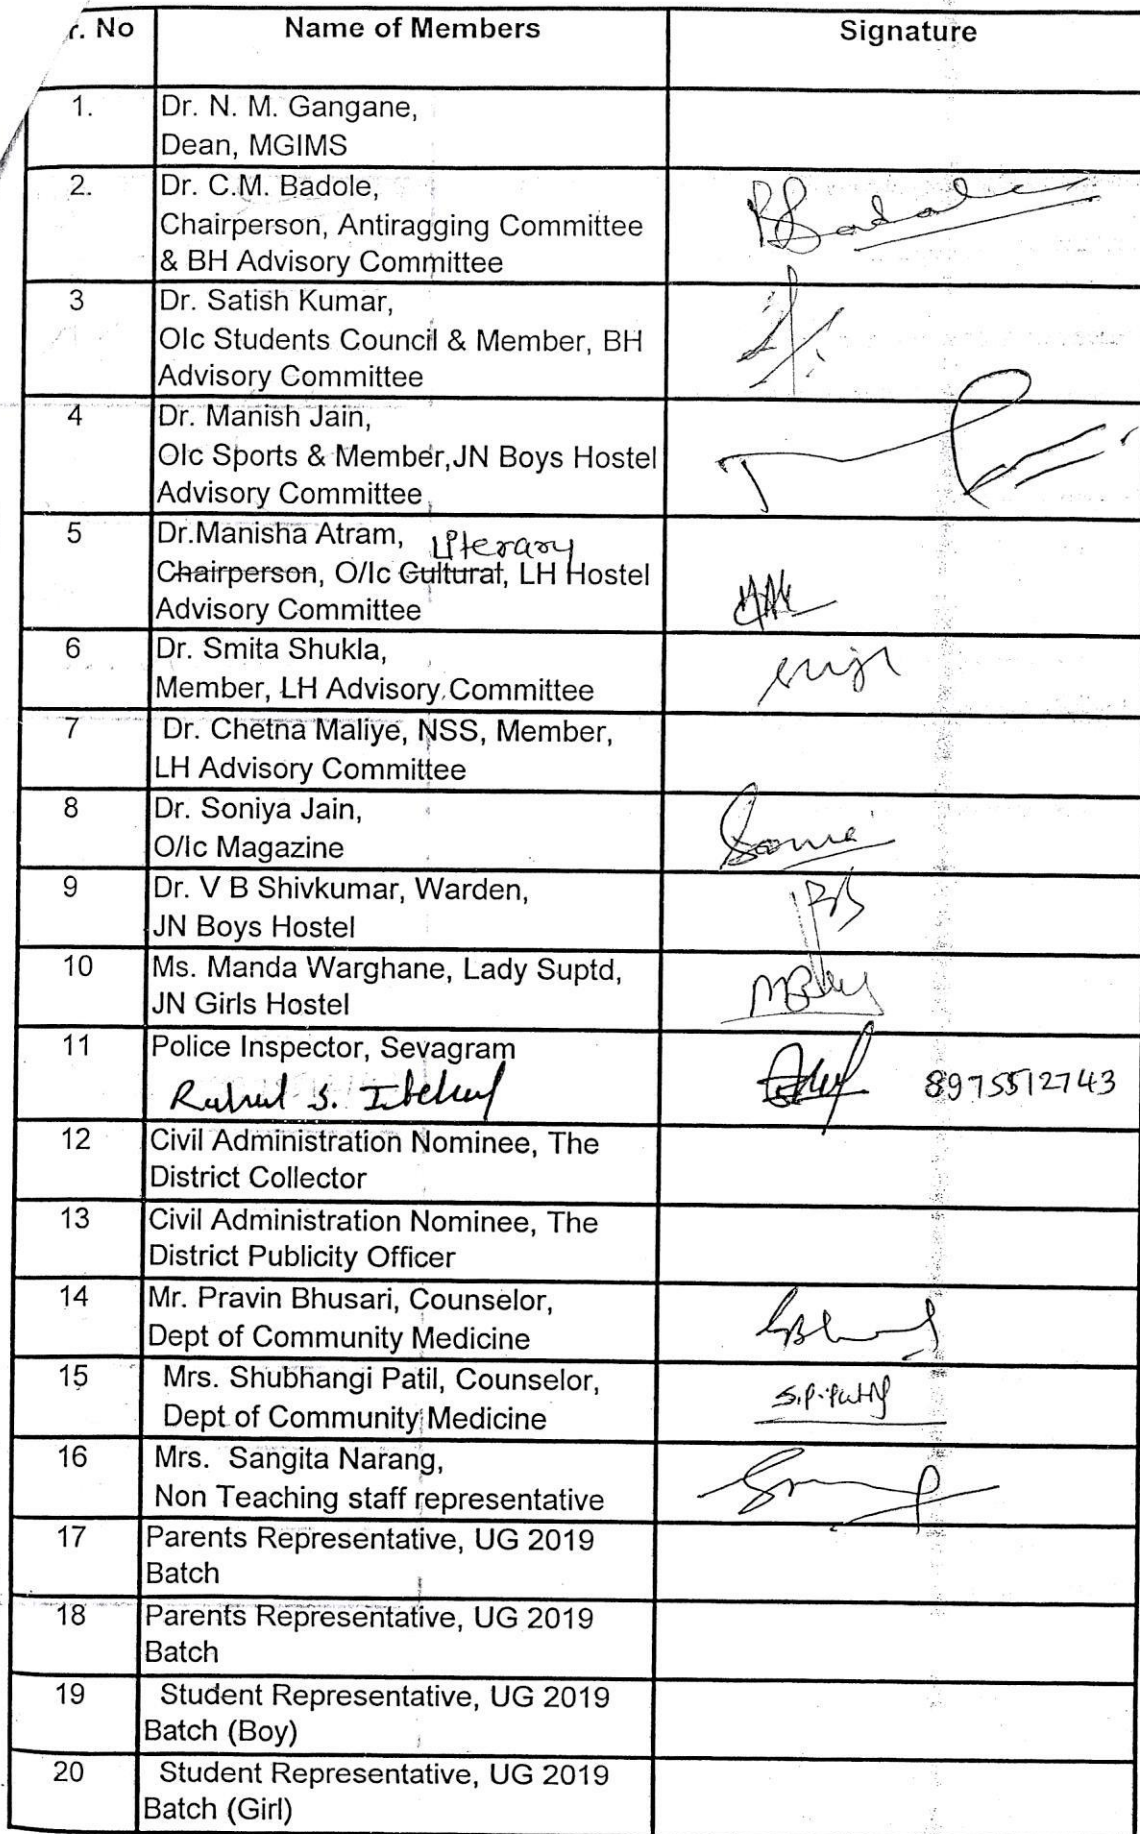 r. No Name of Members Signature
1. Dr. N. M. Gangane,
Dean, MGIMS
2. Dr. C.M. Badole,
Chairperson, Antiragging Committee
& BH Advisory Committee
3 Dr. Satish Kumar,
OIc Students Council & Member, BH
Advisory Committee
4 Dr. Manish Jain,
OIc Sports & Member,JN Boys Hostel
Advisory Committee
5 Dr.Manisha Atram,
Literary
Chairperson, O/Ic Cultural, LH Hostel
Advisory Committee
6 Dr. Smita Shukla,
Member, LH Advisory Committee
7 Dr. Chetna Maliye, NSS, Member,
LH Advisory Committee
8 Dr. Soniya Jain,
O/Ic Magazine
9 Dr. V B Shivkumar, Warden,
JN Boys Hostel
10 Ms. Manda Warghane, Lady Suptd,
JN Girls Hostel
11 Police Inspector, Sevagram
Rahul S. 8975512743
12 Civil Administration Nominee, The
District Collector
13 Civil Administration Nominee, The
District Publicity Officer
14 Mr. Pravin Bhusari, Counselor,
Dept of Community Medicine
15 Mrs. Shubhangi Patil, Counselor,
Dept of Community Medicine
S.P.Patil
16 Mrs. Sangita Narang,
Non Teaching staff representative
17 Parents Representative, UG 2019
Batch
18 Parents Representative, UG 2019
Batch
19 Student Representative, UG 2019
Batch (Boy)
20 Student Representative, UG 2019
Batch (Girl)